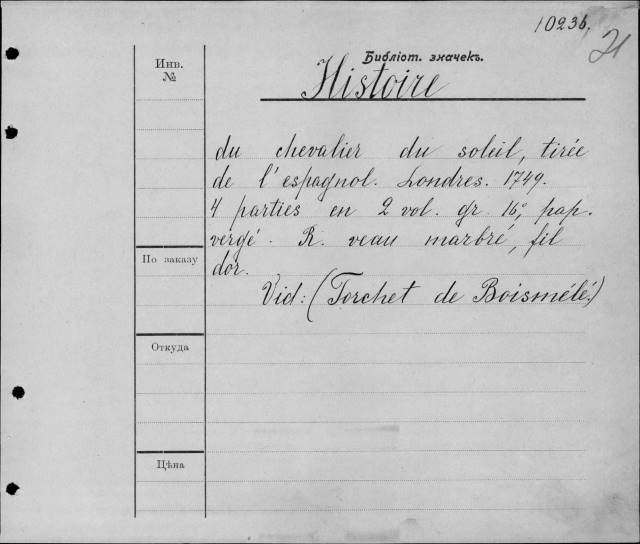 10236,
21
Библіот. значекъ.
Инв.
№
Histoire
du chevalier du soleil, tirée
de l'espagnol. Londres. 1749.
4 parties en 2 vol. gr 16°, pap.
vergé. R. veau marbré, fil
dor.
По заказу
Vid: (Torchet de Boismélé.)
Откуда
Цѣна